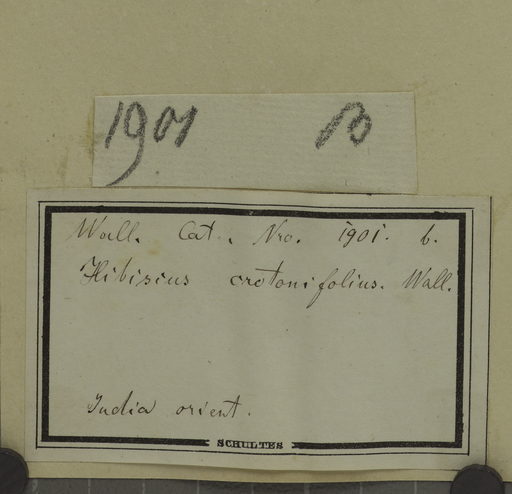 1901 B
Wall. Cat. Nro. 1901. b.
Hibiscus crotonifolius. Wall.
India orient.
SCHULTES